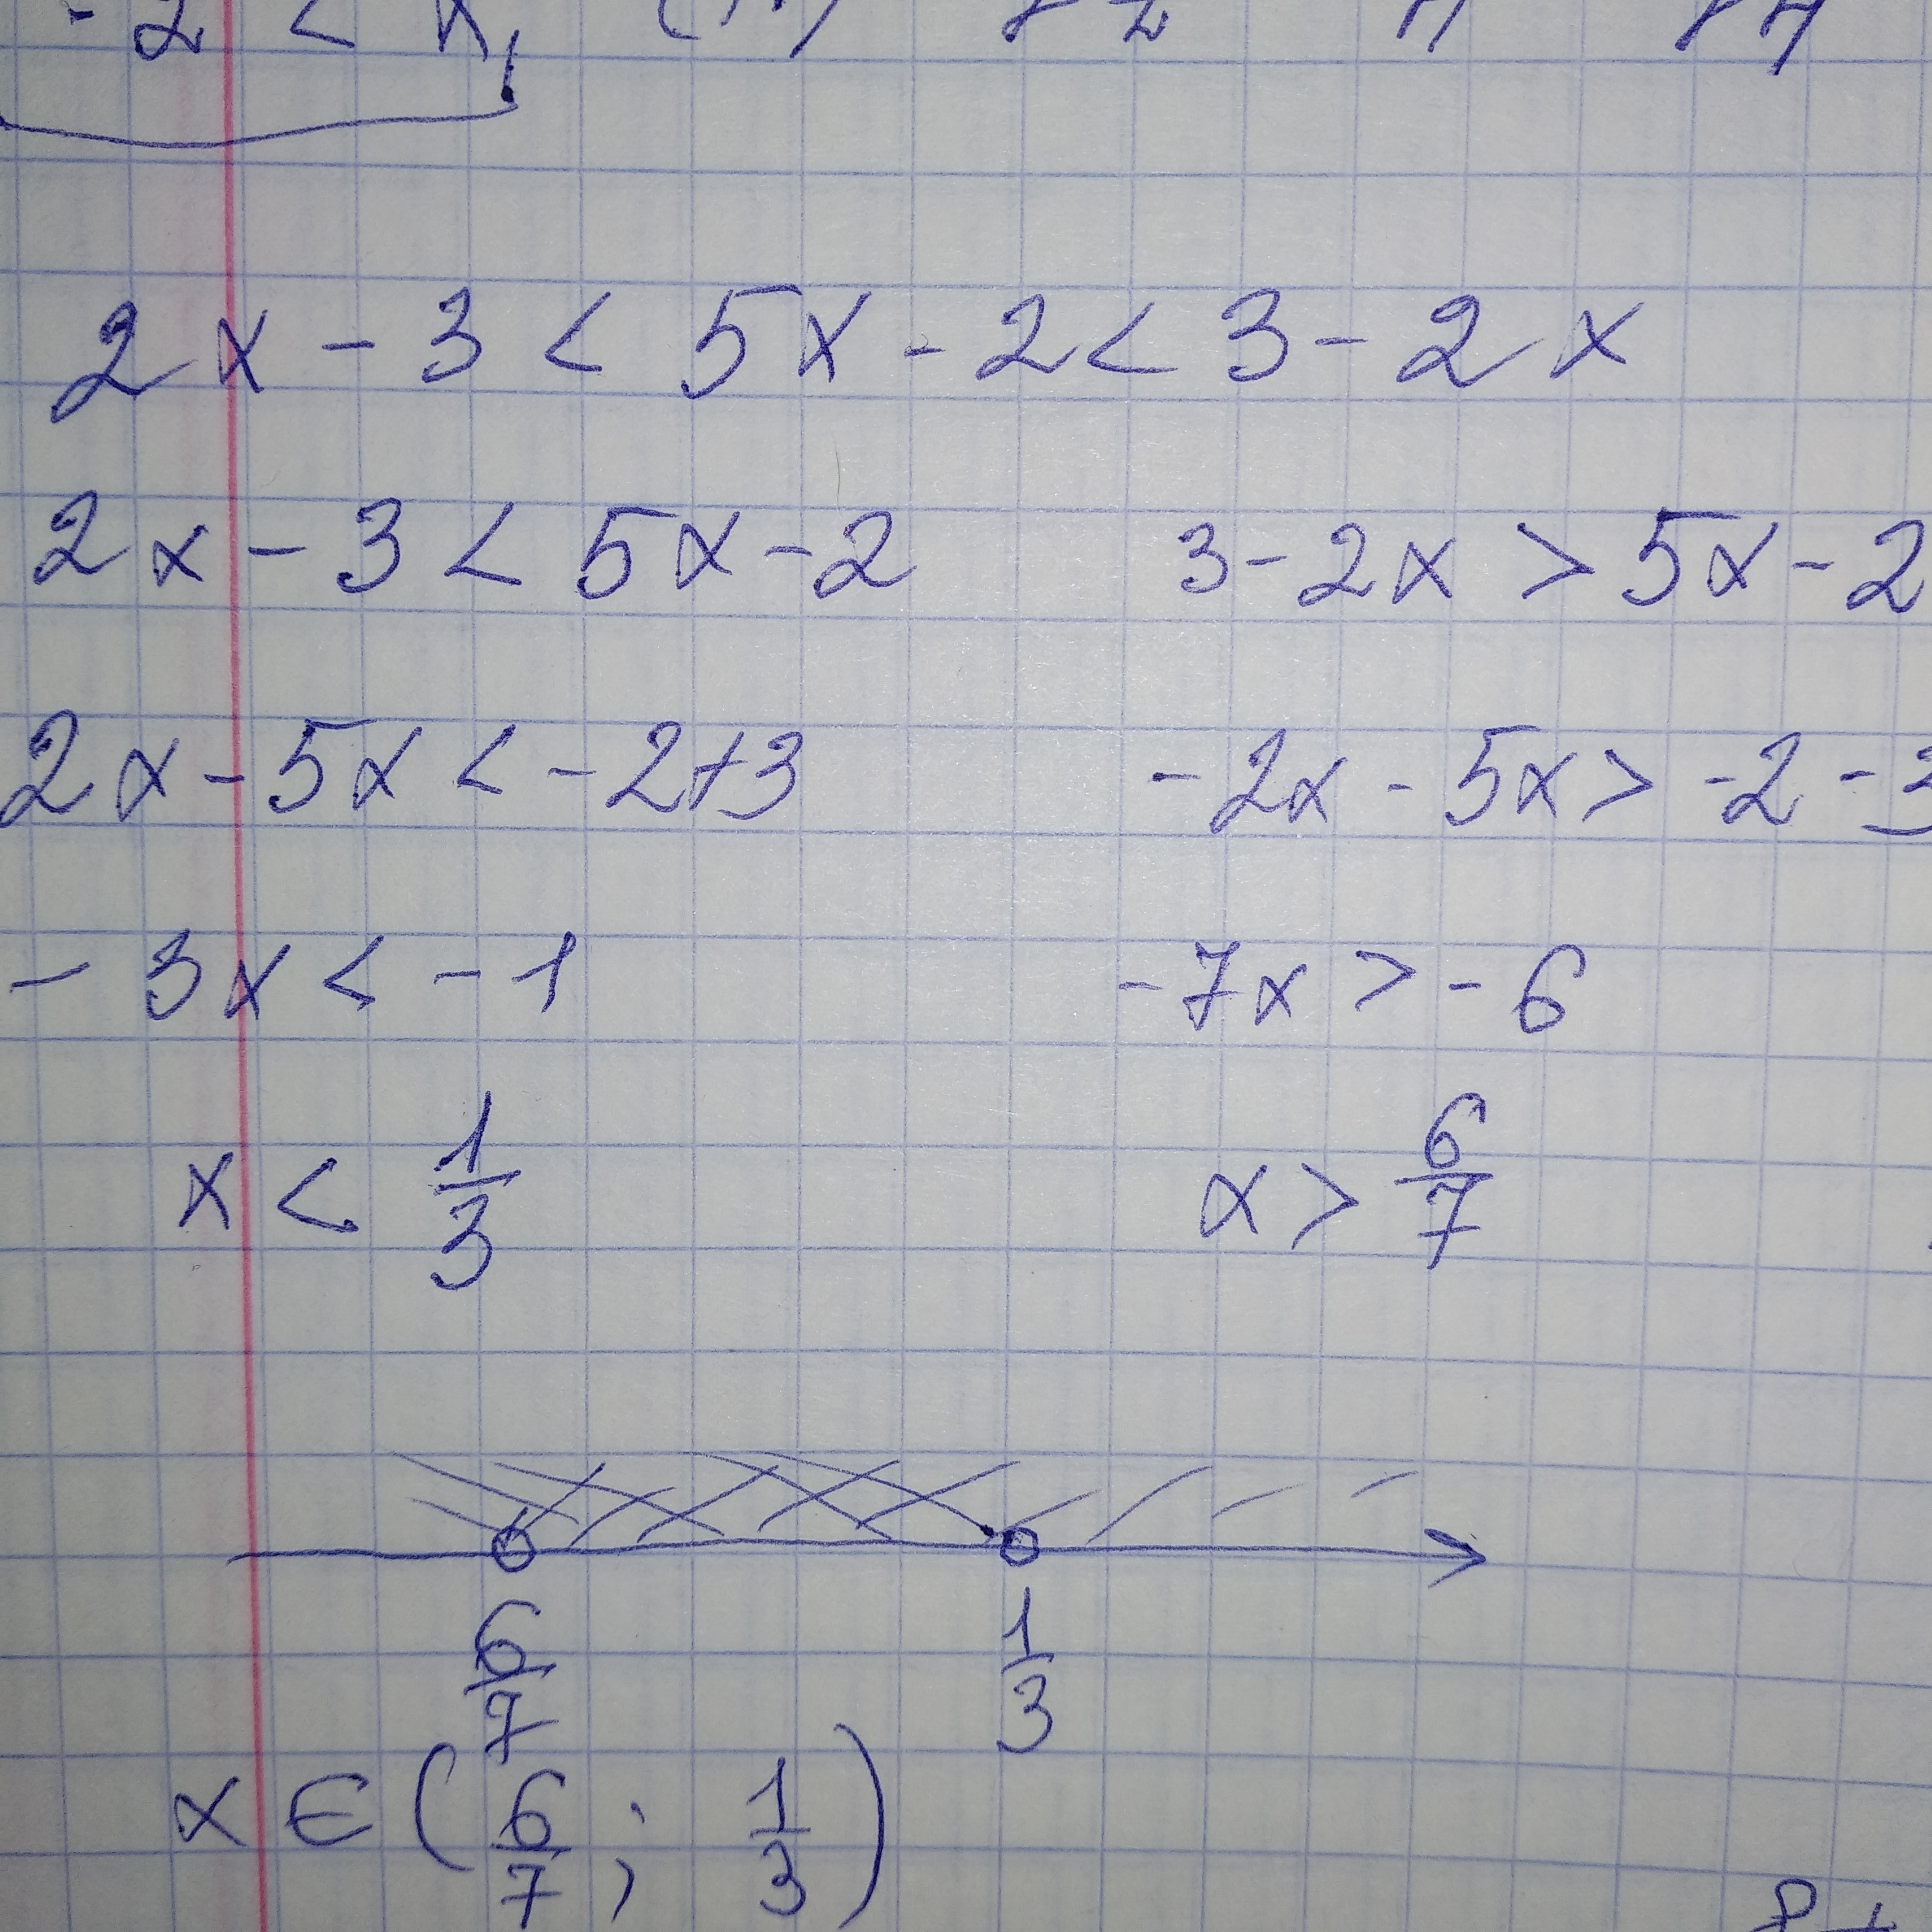 -2 < x,
2x - 3 < 5x - 2 < 3 - 2x
2x - 3 < 5x - 2 3 - 2x > 5x - 2
2x - 5x < -2+3 -2x - 5x > -2 - 3
- 3x < - 1 -7x > - 6
x < 1/3 x > 6/7
6/7 1/3
x ∈ (6/7 ; 1/3)